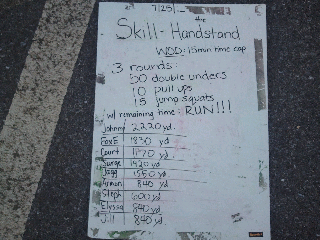 7/25/
Skill - Handstand
WOD: 15 min time cap
3 rounds:
50 double unders
10 pull ups
15 jump squats
w/ remaining time: RUN!!!
Johnny 2220 yd.
FoxE 1830 yd.
Court 1170 yd.
Surge 1420 yd.
Jagg 1550 yd.
840 yd.
Steph 600 yd.
Elyssa 840 yd.
Jill 840 yd.